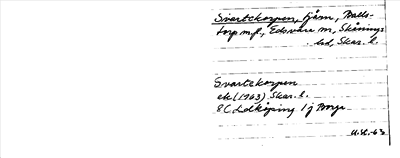 Svartekorpen, tjärn, Balls-
torp mfl, Edsvära sn, Skånings
hd, Skar. l.
Svartekorpen
ek (1963) Skar. l.
8C Lidköping 1 j
U.H. -63